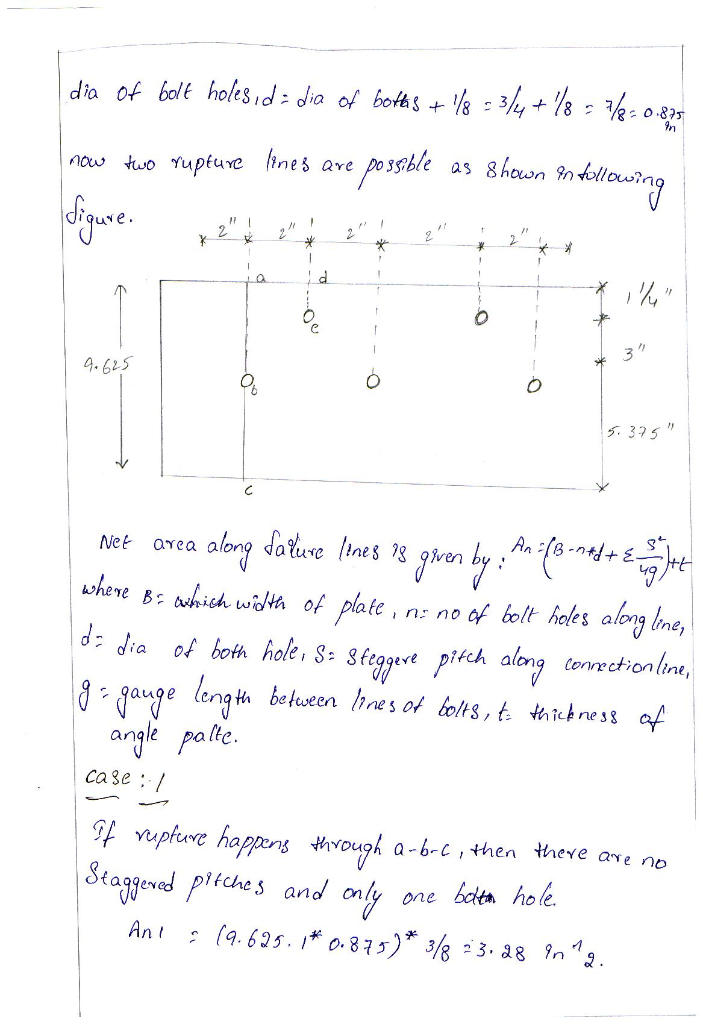 dia of bolt holes, d = dia of bolts + 1/8 = 3/4 + 1/8 = 7/8 = 0.875 in
now two rupture lines are possible as shown in following
figure.
2" 2" 2" 2" 2"
a d
1 1/4"
e
3"
9.625
b
5.375"
c
Net area along failure lines is given by : An = (B - n*d + Σ S²/4g)*t
where B = width of plate, n = no of bolt holes along line,
d = dia of both hole, S = steggere pitch along connection line,
g = gauge length between lines of bolts, t = thickness of
angle palte.
case : 1
If rupture happens through a-b-c, then there are no
Staggered pitches and only one hole.
An1 = (9.625. 1* 0.875)* 3/8 = 3.28 in^2.